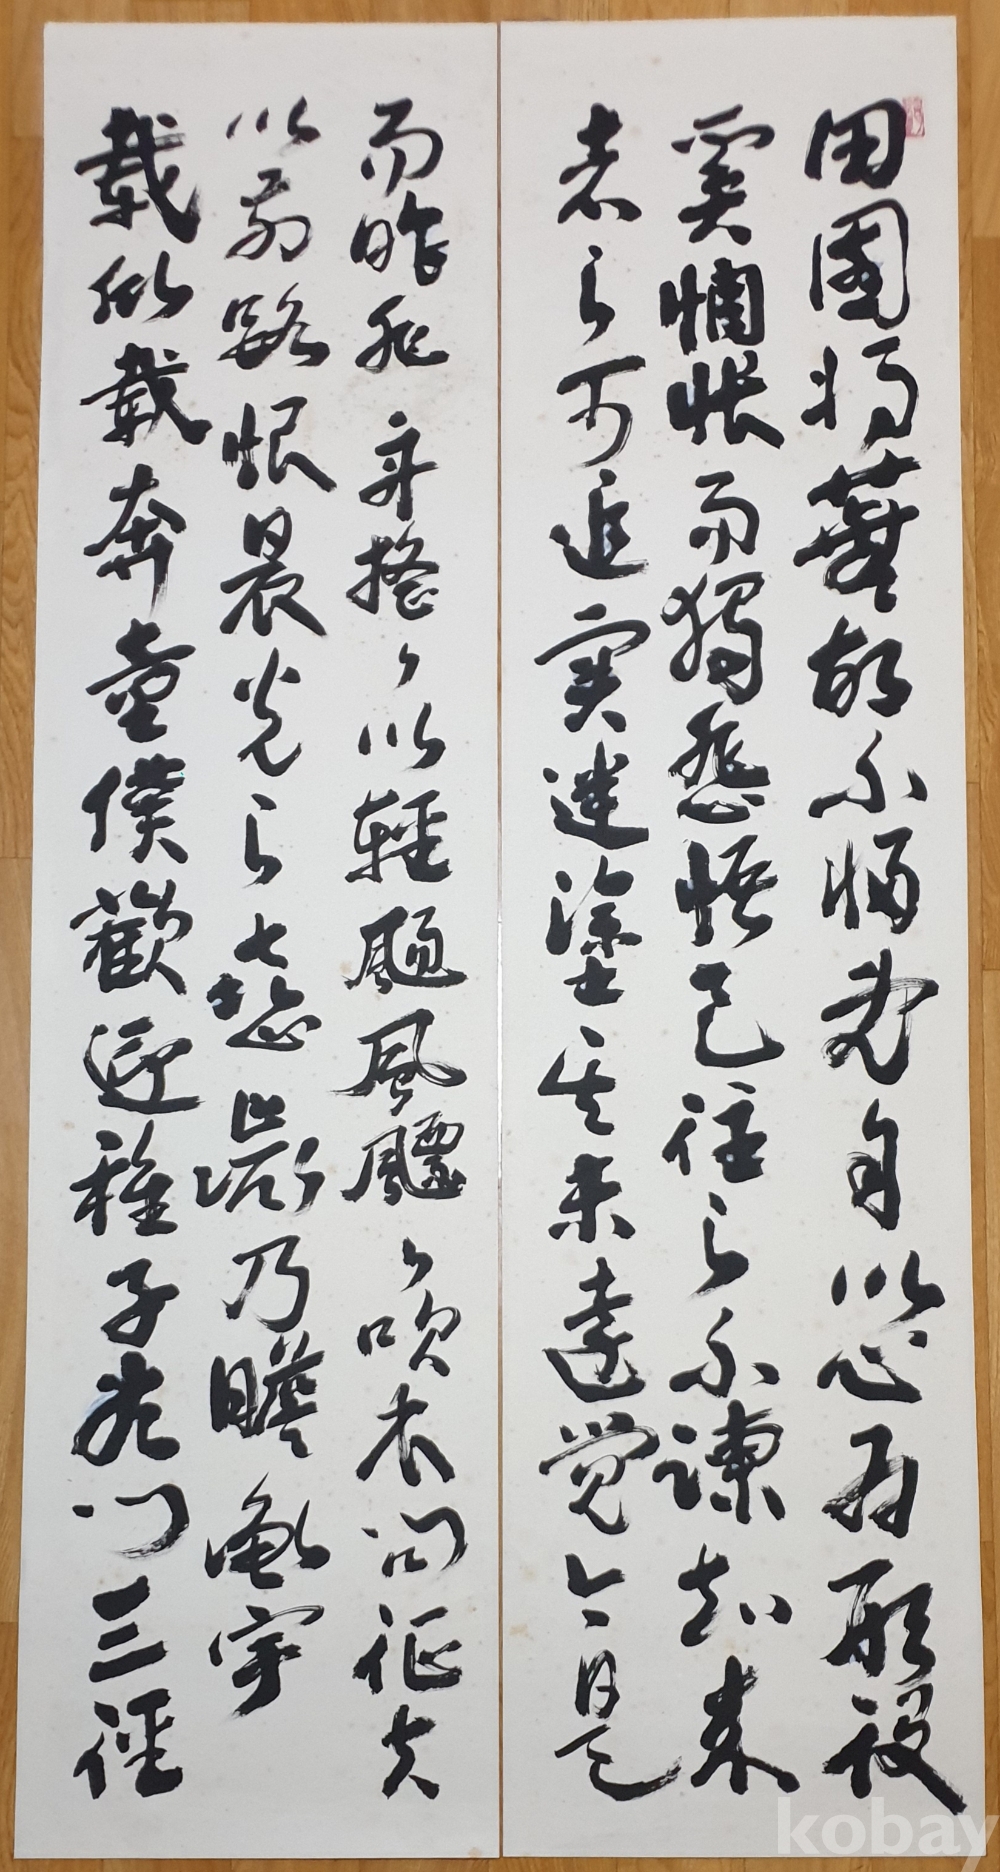 田園將蕪胡不歸既自以心爲形役
奚惆悵而獨悲悟已往之不諫知來
者之可追實迷塗其未遠覺今是
而昨非舟搖々以輕颺風飄々吹衣問征夫
以前路恨晨光之熹微乃瞻衡宇
載欣載奔童僕歡迎稚子候門三徑
kobay